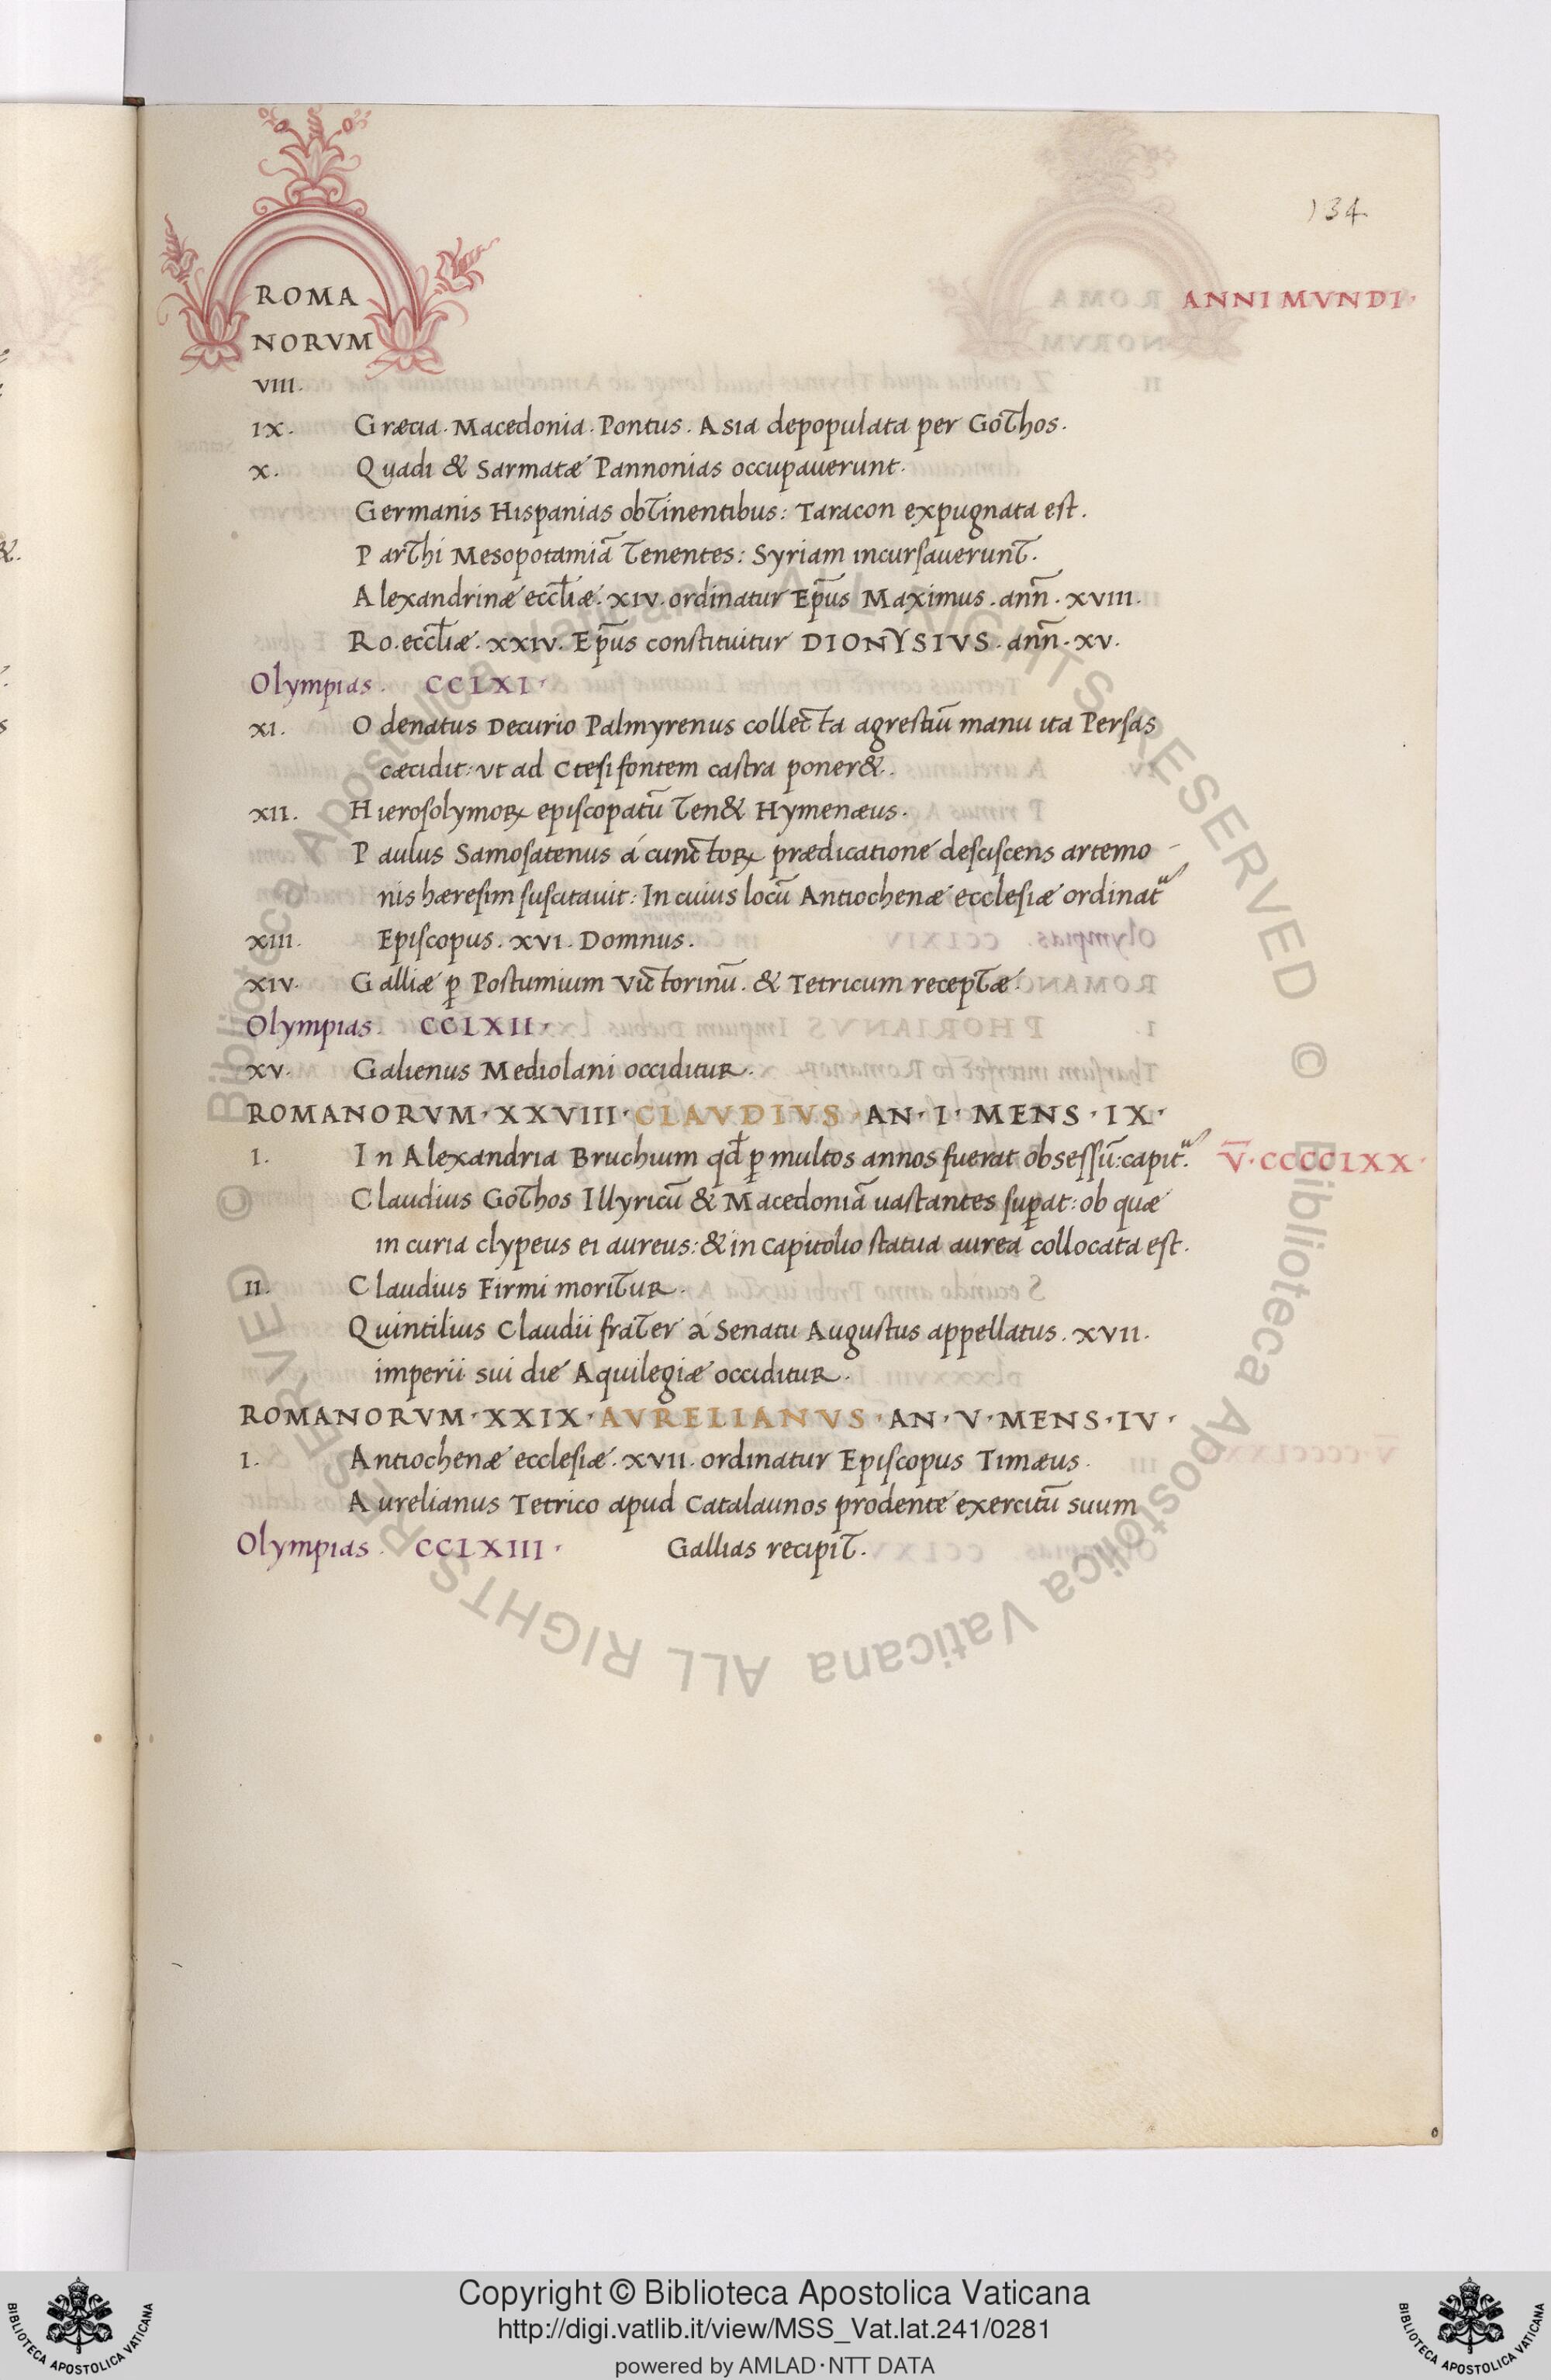 134.
ROMA
NORVM
ANNI MVNDI.
VIII.
IX. Græcia. Macedonia. Pontus. Asia depopulata per Gothos.
X. Quadi & Sarmatæ Pannonias occupauerunt.
Germanis Hispanias obtinentibus: Taracon expugnata est.
Parthi Mesopotamiā tenentes: Syriam incursauerunt.
Alexandrinæ eccl̄iæ. XIV. ordinatur Ep̄us Maximus. ann̄. XVIII.
Ro. eccl̄iæ. XXIV. Ep̄us constituitur DIONYSIVS. ann̄. XV.
Olympias. CCLXI.
XI. Odenatus Decurio Palmyrenus collecta agrestiū manu ita Persas
cæcidit: vt ad Ctesifontem castra poner&.
XII. Hierosolymoꝝ episcopatū ten& Hymenæus.
Paulus Samosatenus á cunctoꝝ prædicatione desciscens artemo-
nis hæresim suscitauit: In cuius locū Antiochenæ ecclesiæ ordinat᷑
XIII. Episcopus. XVI. Domnus.
XIV. Galliæ ꝑ Postumium Victorinū. & Tetricum receptæ.
Olympias. CCLXII.
XV. Galienus Mediolani occiditur.
ROMANORVM. XXVIII. CLAVDIVS. AN. I. MENS. IX.
I. In Alexandria Bruchium qd̄ ꝑ multos annos fuerat obsessū: capit᷑. V̄. CCCCLXX.
Claudius Gothos Illyricū & Macedoniā uastantes suꝑat: ob quæ
in curia clypeus ei aureus: & in capitolio statua aurea collocata est.
II. Claudius Firmi moritur.
Quintilius Claudii frater à Senatu Augustus appellatus. XVII.
imperii sui die Aquilegiæ occiditur.
ROMANORVM. XXIX. AVRELIANVS. AN. V. MENS. IV.
I. Antiochenæ ecclesiæ. XVII. ordinatur Episcopus Timæus.
Aurelianus Tetrico apud Catalaunos prodente exercitū suum
Olympias. CCLXIII. Gallias recipit.
© Biblioteca Apostolica Vaticana ALL RIGHTS RESERVED © Biblioteca Apostolica Vaticana ALL RIGHTS RESERVED
BIBLIOTECA APOSTOLICA VATICANA
Copyright © Biblioteca Apostolica Vaticana
http://digi.vatlib.it/view/MSS_Vat.lat.241/0281
powered by AMLAD·NTT DATA
BIBLIOTECA APOSTOLICA VATICANA